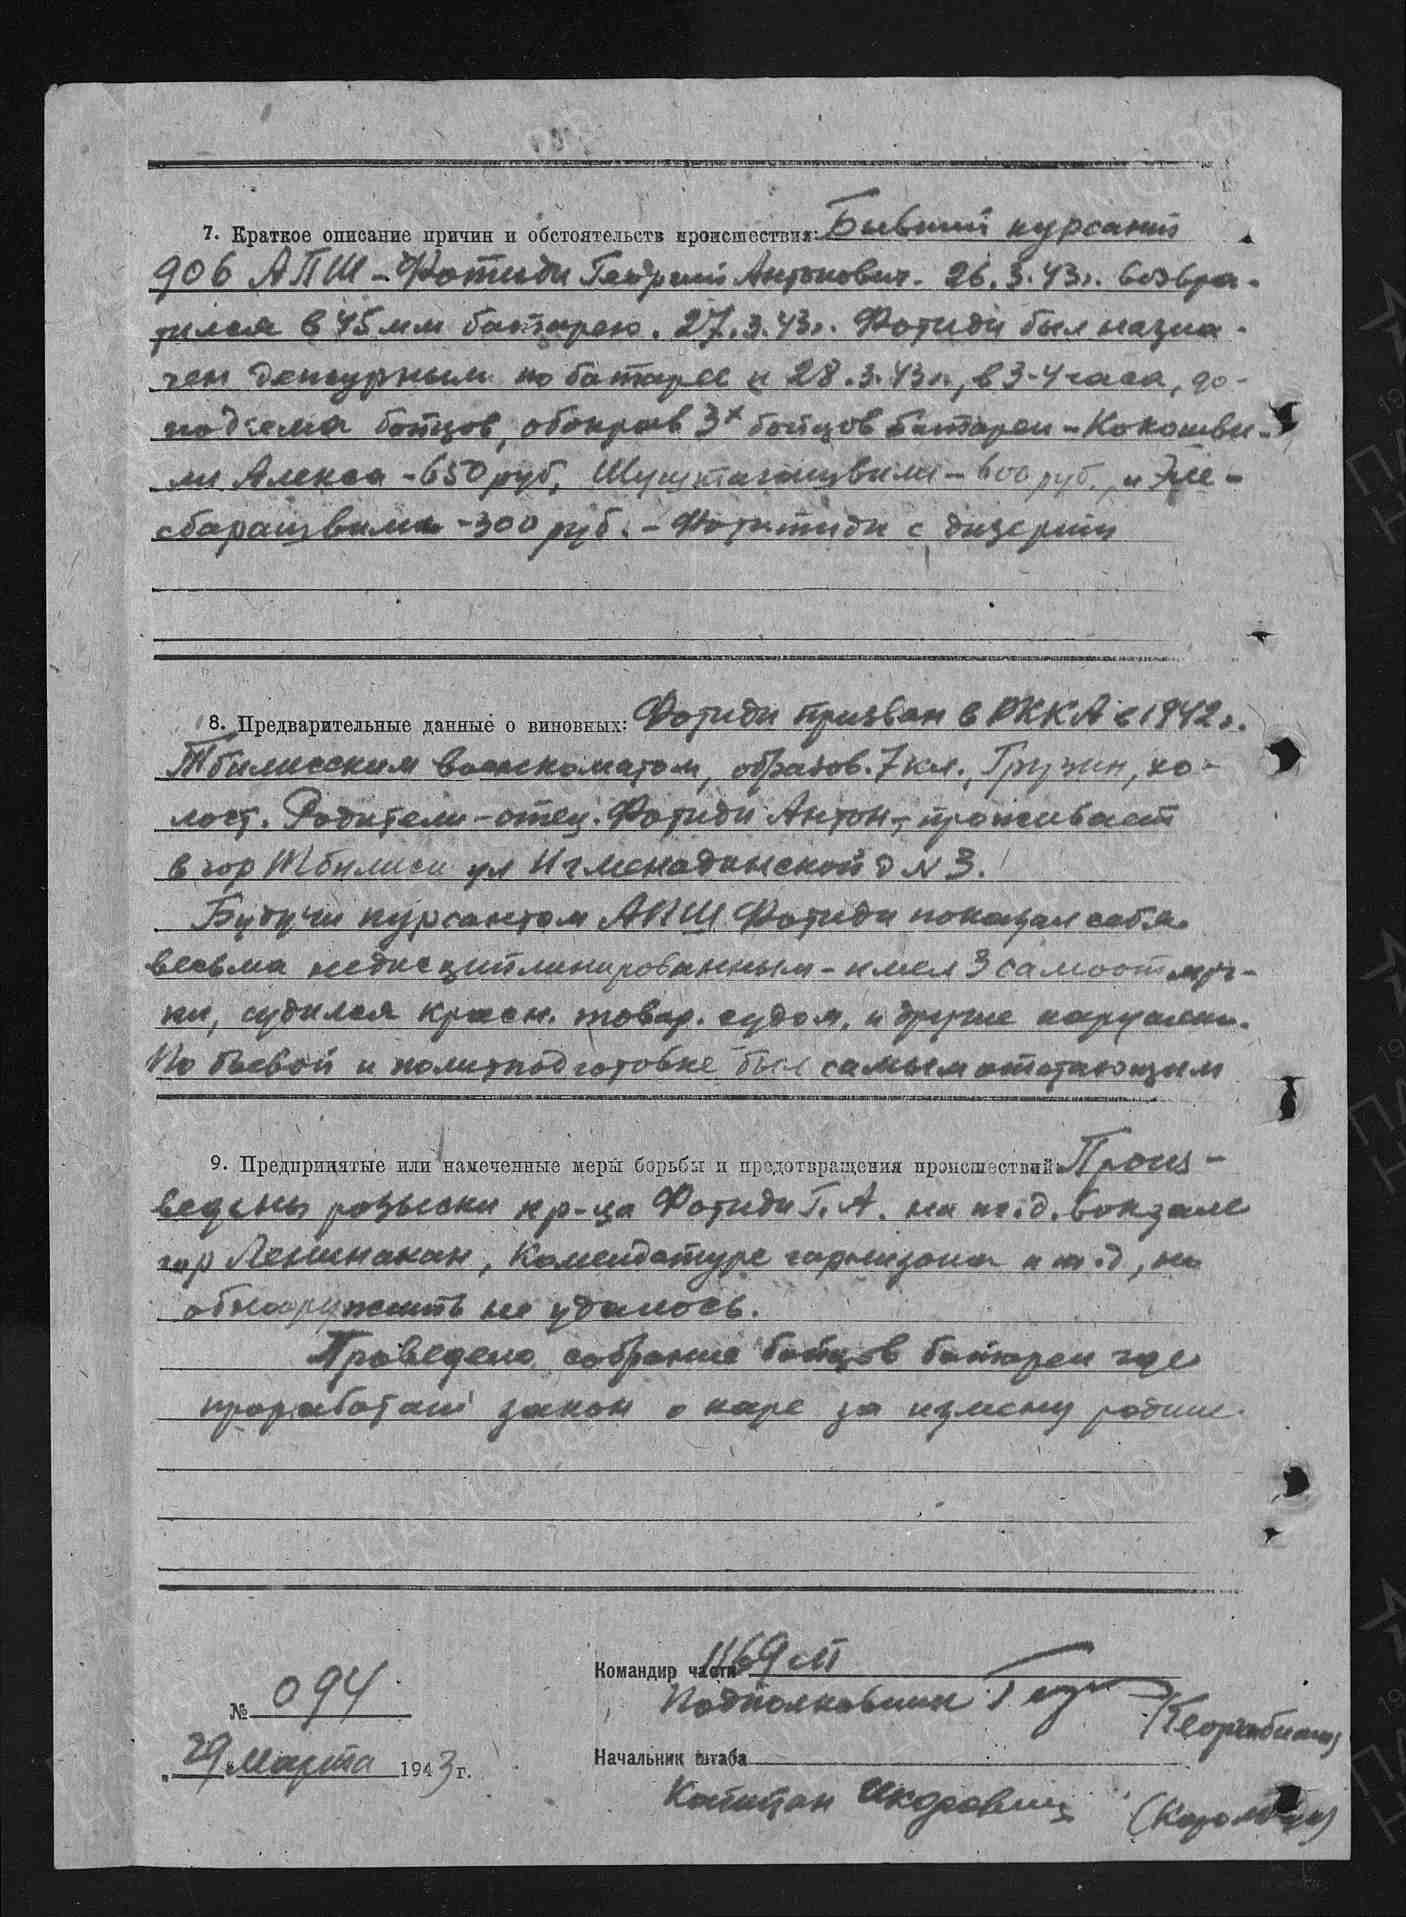 7. Краткое описание причин и обстоятельств происшествия: Бывший курсант
906 АПШ - Фотиди Георгий Антонович. 26.3.43г. возвра-
тился в 45 мм батарею. 27.3.43г. Фотиди был назна-
чен дежурным по батарее и 28.3.43г., в 3-4 часа, до-
подъема бойцов, обокрав 3х бойцов батареи - Кокошви-
ли Алекса - 650 руб, - 600 руб., и Эле-
сбарашвили - 300 руб. - Фотиди с дизертир
8. Предварительные данные о виновных: Фотиди призван в РККА в 1942г.
Тбилисским военкоматом, образов. 7 кл., Грузин, хо-
лост. Родители - отец. Фотиди Антон, проживает
в гор Тбилиси ул д N 3.
Будучи курсантом АПШ Фотиди показал себя
весьма недисциплинированным - имел 3 самоотлуч-
ки, судился красн. товар. судом, и другие нарушени.
По боевой и политподготовке был самым отстающим
9. Предпринятые или намеченные меры борьбы и предотвращения происшествий: Произ-
ведены розыски кр-ца Фотиди Г. А. на ж.д. вокзале
гор Ленинакан, Комендатуре гарнизона и т.д, но
обнаружить не удалось.
Проведено собрание бойцов батареи где
проработан закон о каре за измену родине.
Командир части 1169 сп
№ 094 Подполковник
"29" марта 1943 г. Начальник штаба
Капитан